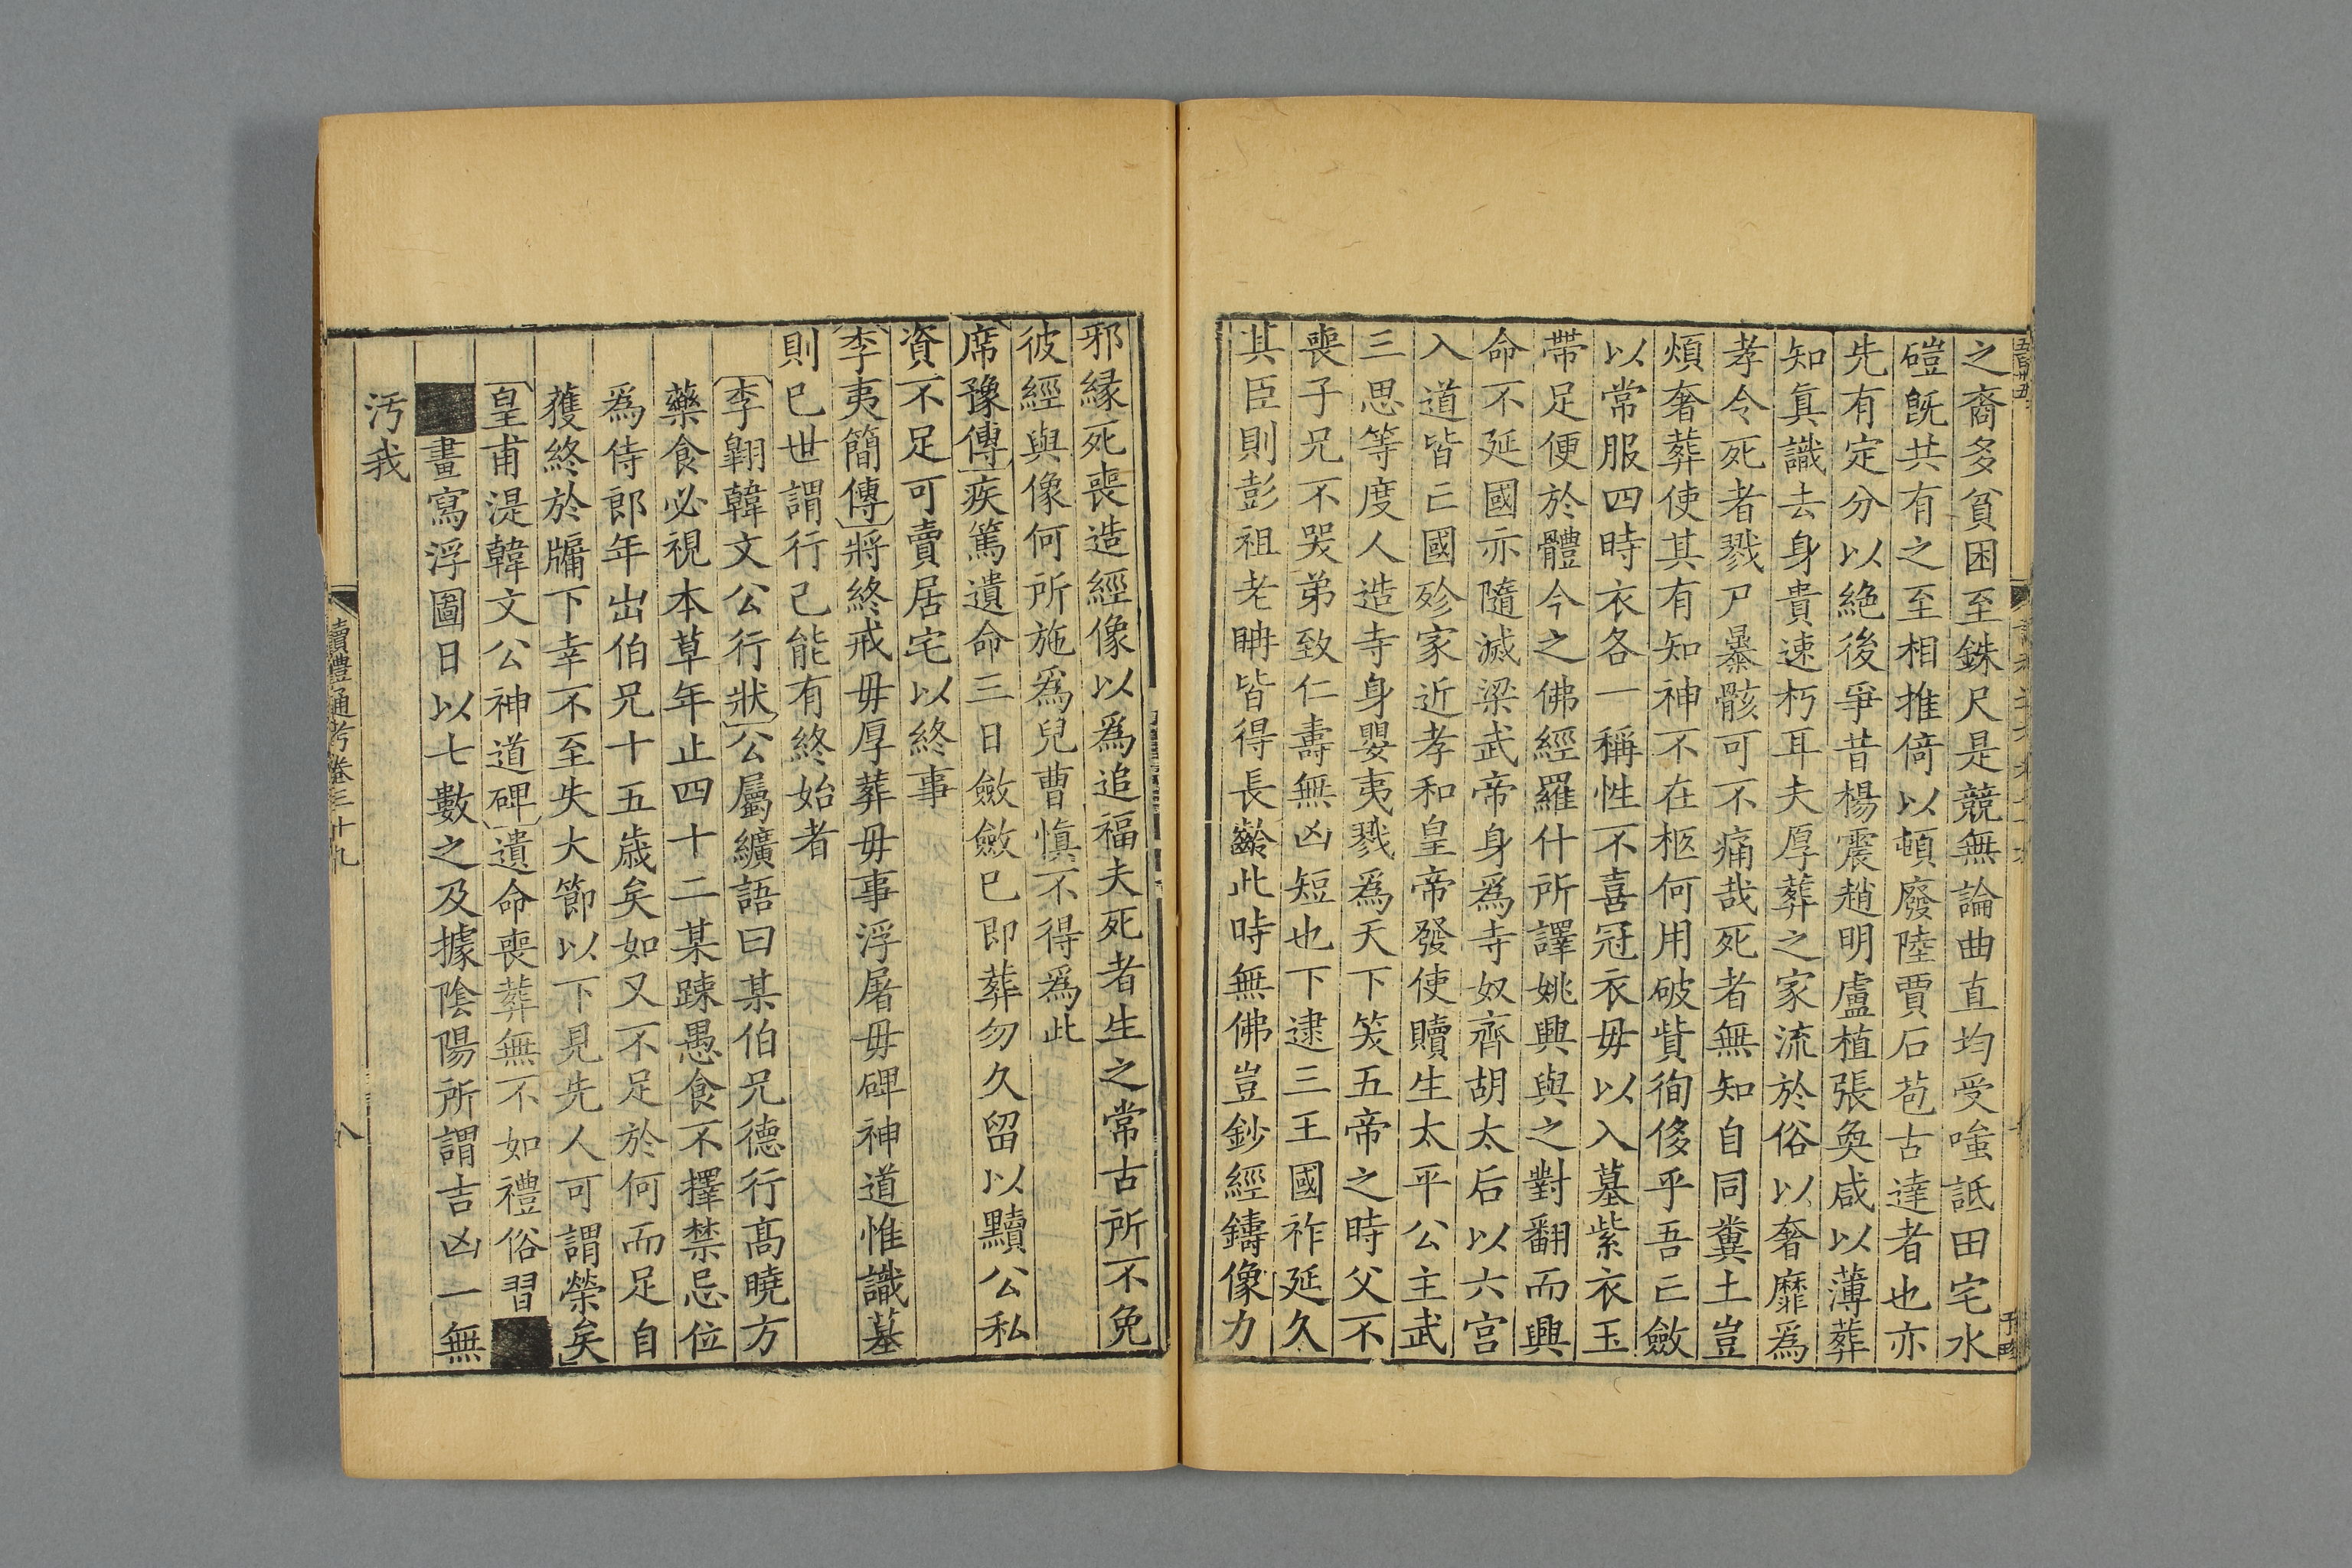 之裔多貧困至銖尺是競無論曲直均受嗤詆田宅水
磑旣共有之至相推倚以頓廢陸賈石苞古達者也亦
先有定分以絶後爭昔楊震趙明盧植張奐咸以薄葬
知眞識去身貴速朽耳夫厚葬之家流於俗以奢靡爲
孝令死者戮尸暴骸可不痛哉死者無知自同糞土豈
煩奢葬使其有知神不在柩何用破貲徇侈乎吾亡斂
以常服四時衣各一稱性不喜冠衣毋以入墓紫衣玉
帶足便於體今之佛經羅什所譯姚興與之對翻而興
命不延國亦隨滅梁武帝身爲寺奴齊胡太后以六宮
入道皆亡國殄家近孝和皇帝發使贖生太平公主武
三思等度人造寺身嬰夷戮爲天下笑五帝之時父不
喪子兄不哭弟致仁壽無凶短也下逮三王國祚延久
其臣則彭祖老聃皆得長齡此時無佛豈鈔經鑄像力
邪縁死喪造經像以爲追福夫死者生之常古所不免
彼經與像何所施爲兒曹愼不得爲此
席豫傳疾篤遺命三日斂斂已即葬勿久留以黷公私
資不足可賣居宅以終事
李夷簡傳將終戒毋厚葬毋事浮屠毋碑神道惟識墓
則已世謂行己能有終始者
李翺韓文公行狀公屬纊語曰某伯兄德行高曉方
藥食必視本草年止四十二某疎愚食不擇禁忌位
爲侍郎年出伯兄十五歲矣如又不足於何而足自
獲終於牖下幸不至失大節以下見先人可謂榮矣
皇甫湜韓文公神道碑遺命喪葬無不如禮俗習
畫寫浮圖日以七數之及據陰陽所謂吉凶一無
汚我
讀禮通考卷三十九
八